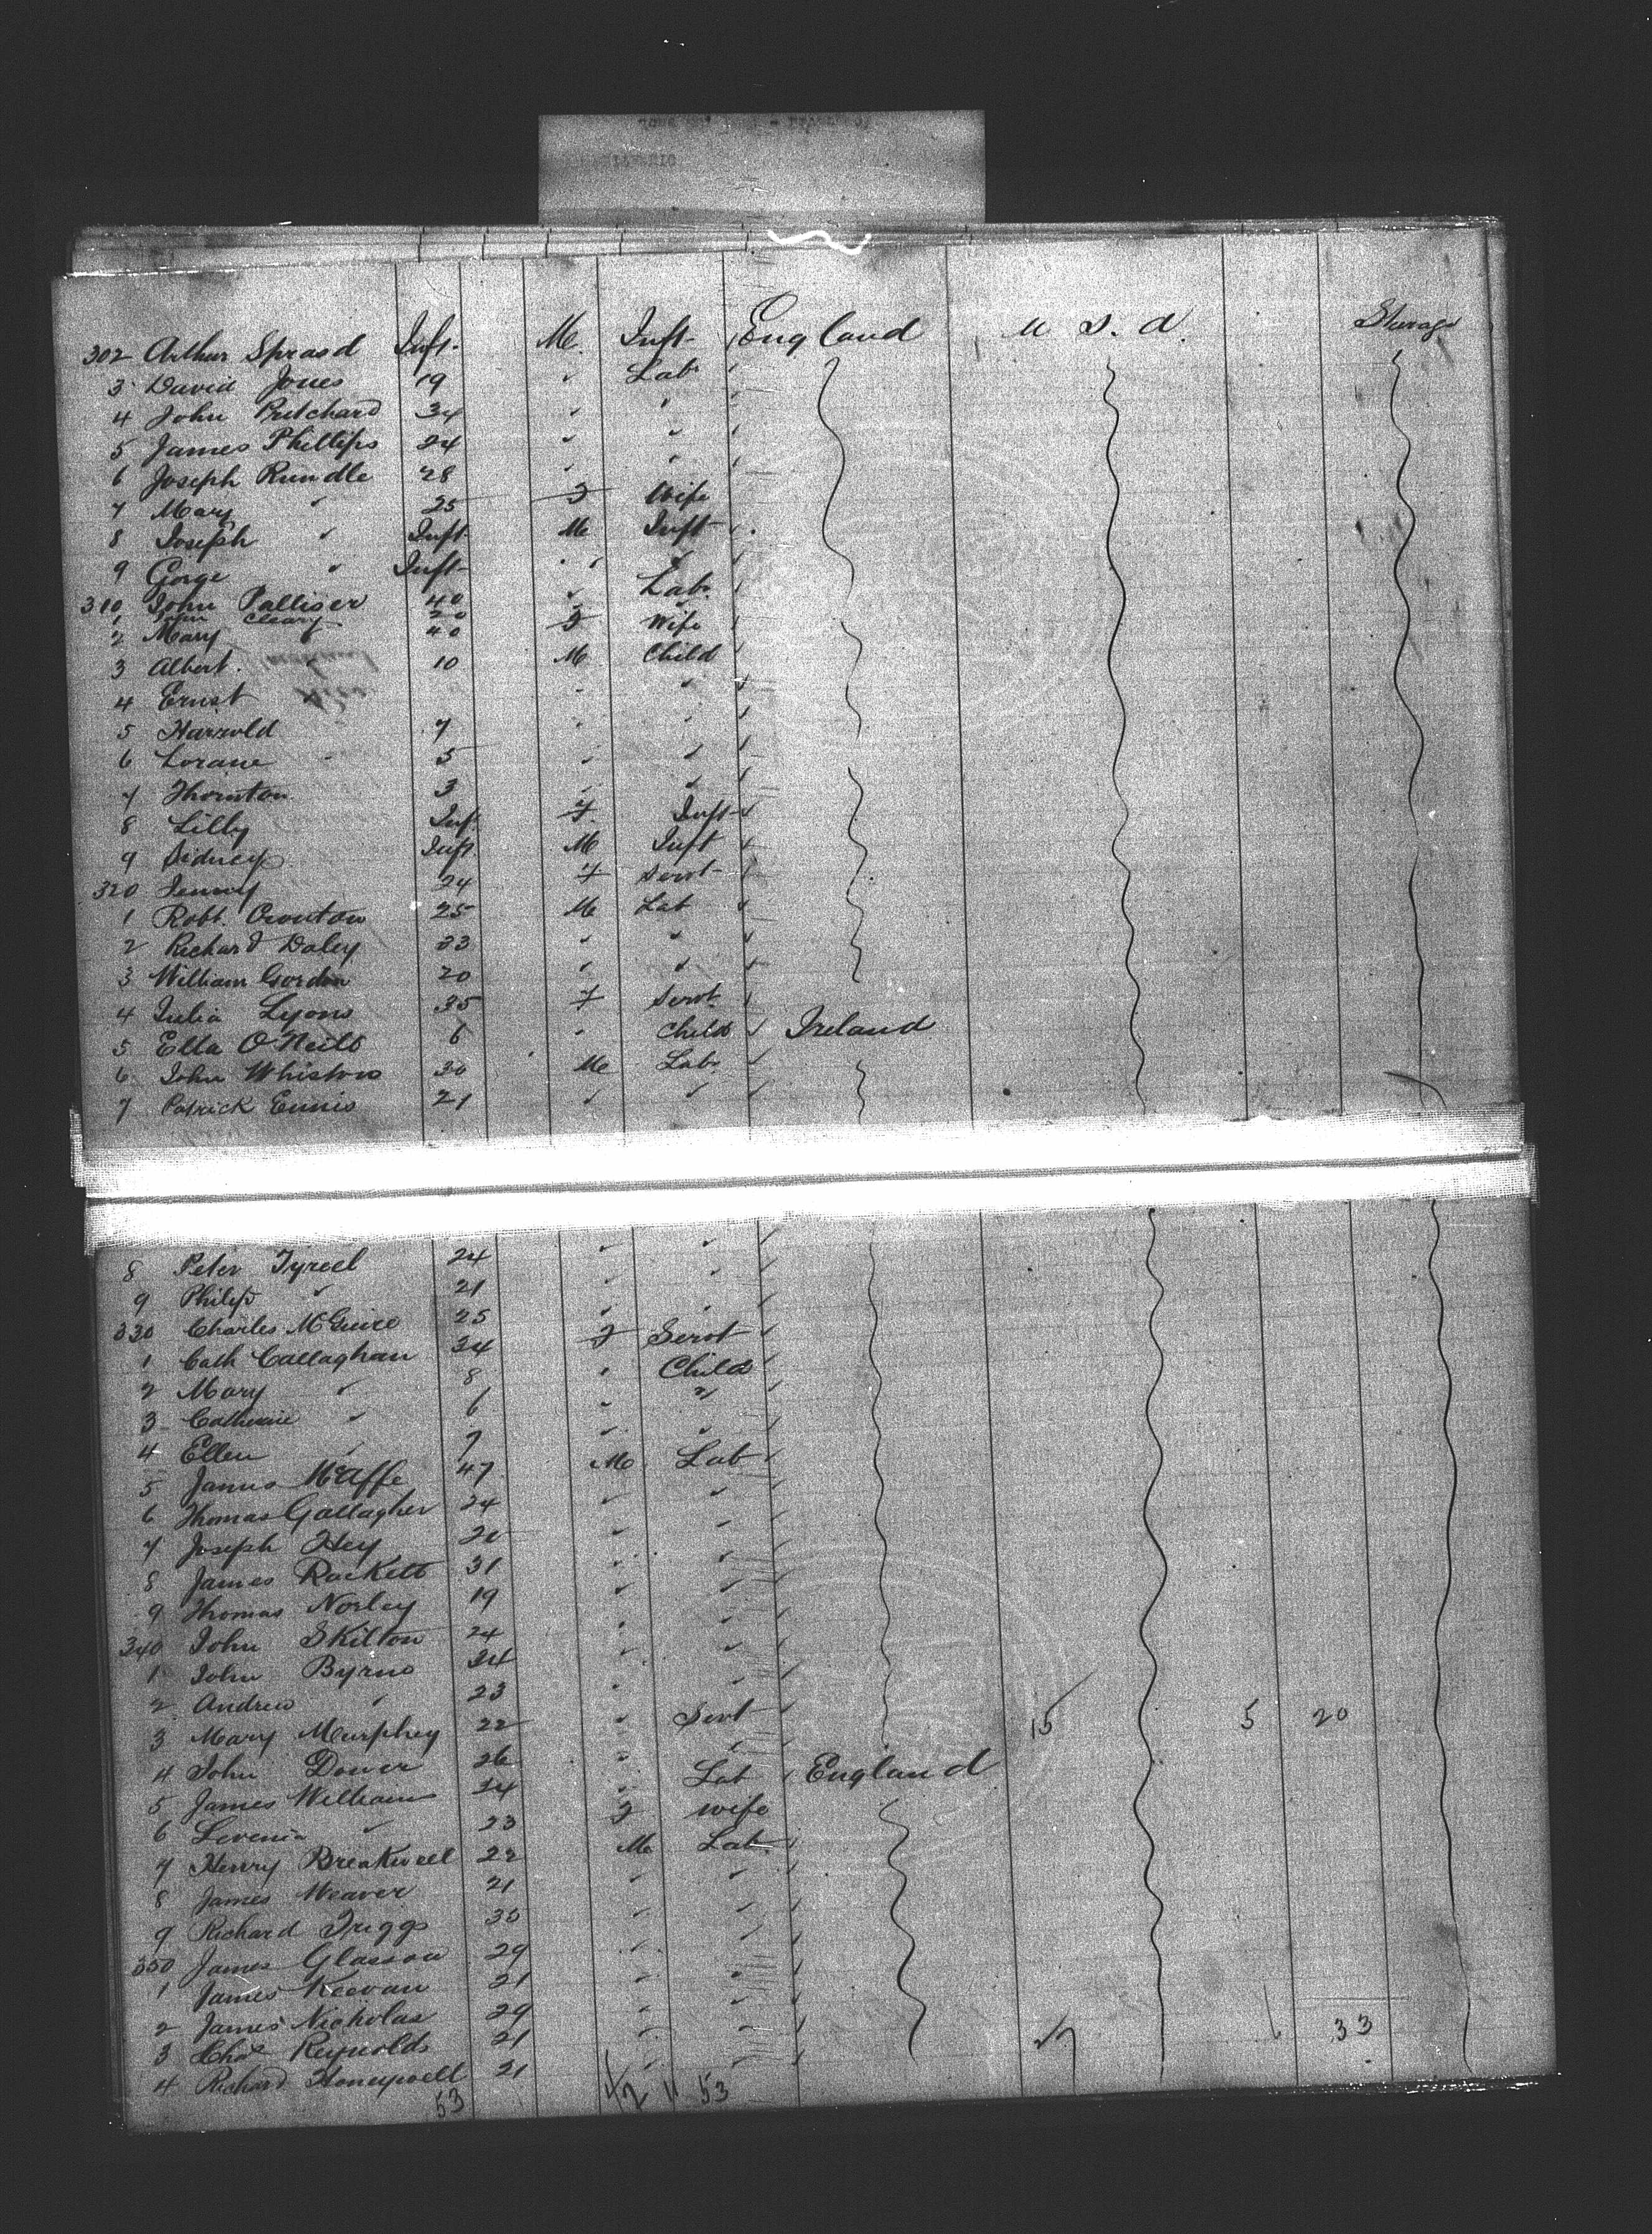 302 Arthur Sprasd Inft. M. Inft England U S. A. Sterage
3 David Jones 19 " Lab.
4 John Pritchard 34 " "
5 James Phillips 24 " "
6 Joseph Rundle 28 " "
7 Mary " 25 F Wife
8 Joseph " Inft M Inft
9 Gorge " Inft " "
310 John Palliser 40 " Lab.
1 John Cleary 20 " "
2 Mary " 40 F Wife
3 Albert " 10 M Child
4 Ernst " "
5 Harrold 7 " "
6 Lorane 5 " "
7 Thornton 3 " "
8 Lilly Inf. F. Inft
9 Sidney Inft M Inft
320 Jenny 24 F Servt
1 Robt. Croutow 25 M Lab
2 Richard Daley 23 " "
3 William Gordon 20 " "
4 Julia Lyons 35 F Servt.
5 Ella O'Neill 6 " Child Ireland
6 John Whiston 20 M Lab.
7 Patrick Ennis 21 " "
8 Peter Tyreel 24 " "
9 Philip " 21 " "
330 Charles McGuire 25 " "
1 Cath Callaghan 34 F Servt
2 Mary " 8 " Child
3 Catherine " 6 " "
4 Ellen " " "
5 James McAffe 47 M Lab
6 Thomas Gallagher 24 " "
7 Joseph Hey 20 " "
8 James Rockett 31 " "
9 Thomas Norley 19 " "
340 John Skilton 24 " "
1 John Byrne 24 " "
2 Andrew " 23 " "
3 Mary Murphey 22 " Servt 15 5 20
4 John Dower 26 " "
5 James Williams 24 " Lab England
6 Levenia " 23 F wife
7 Henry Breakwell 22 M Lab
8 James Weaver 21 " "
9 Richard Triggs 30 " "
350 James Glasson 29 " "
1 James Keevan 21 " "
2 James Nicholas 29 " "
3 Chas Reynolds 21 " " 33
4 Richard Honeywell 21 " "
53 42 11 53